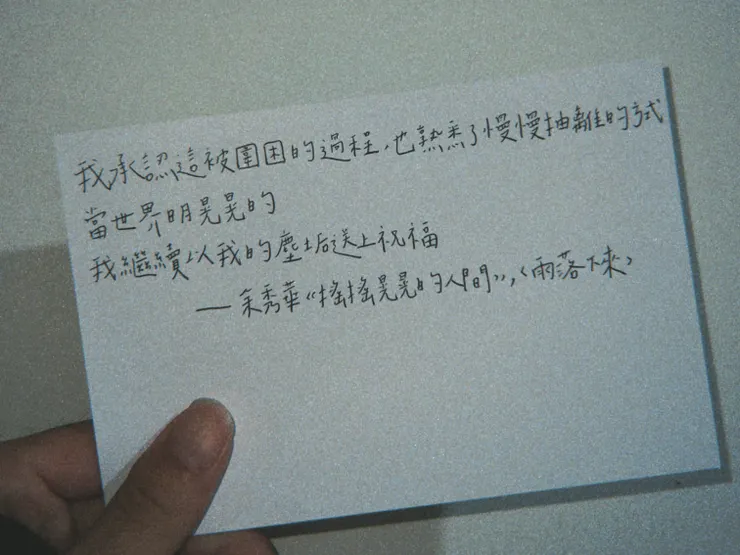 我承認這被圍困的過程,也熟悉了慢慢抽離的方式
當世界明晃晃的
我繼續以我的塵垢送上祝福
——余秀華《搖搖晃晃的人間》,〈雨落下來〉